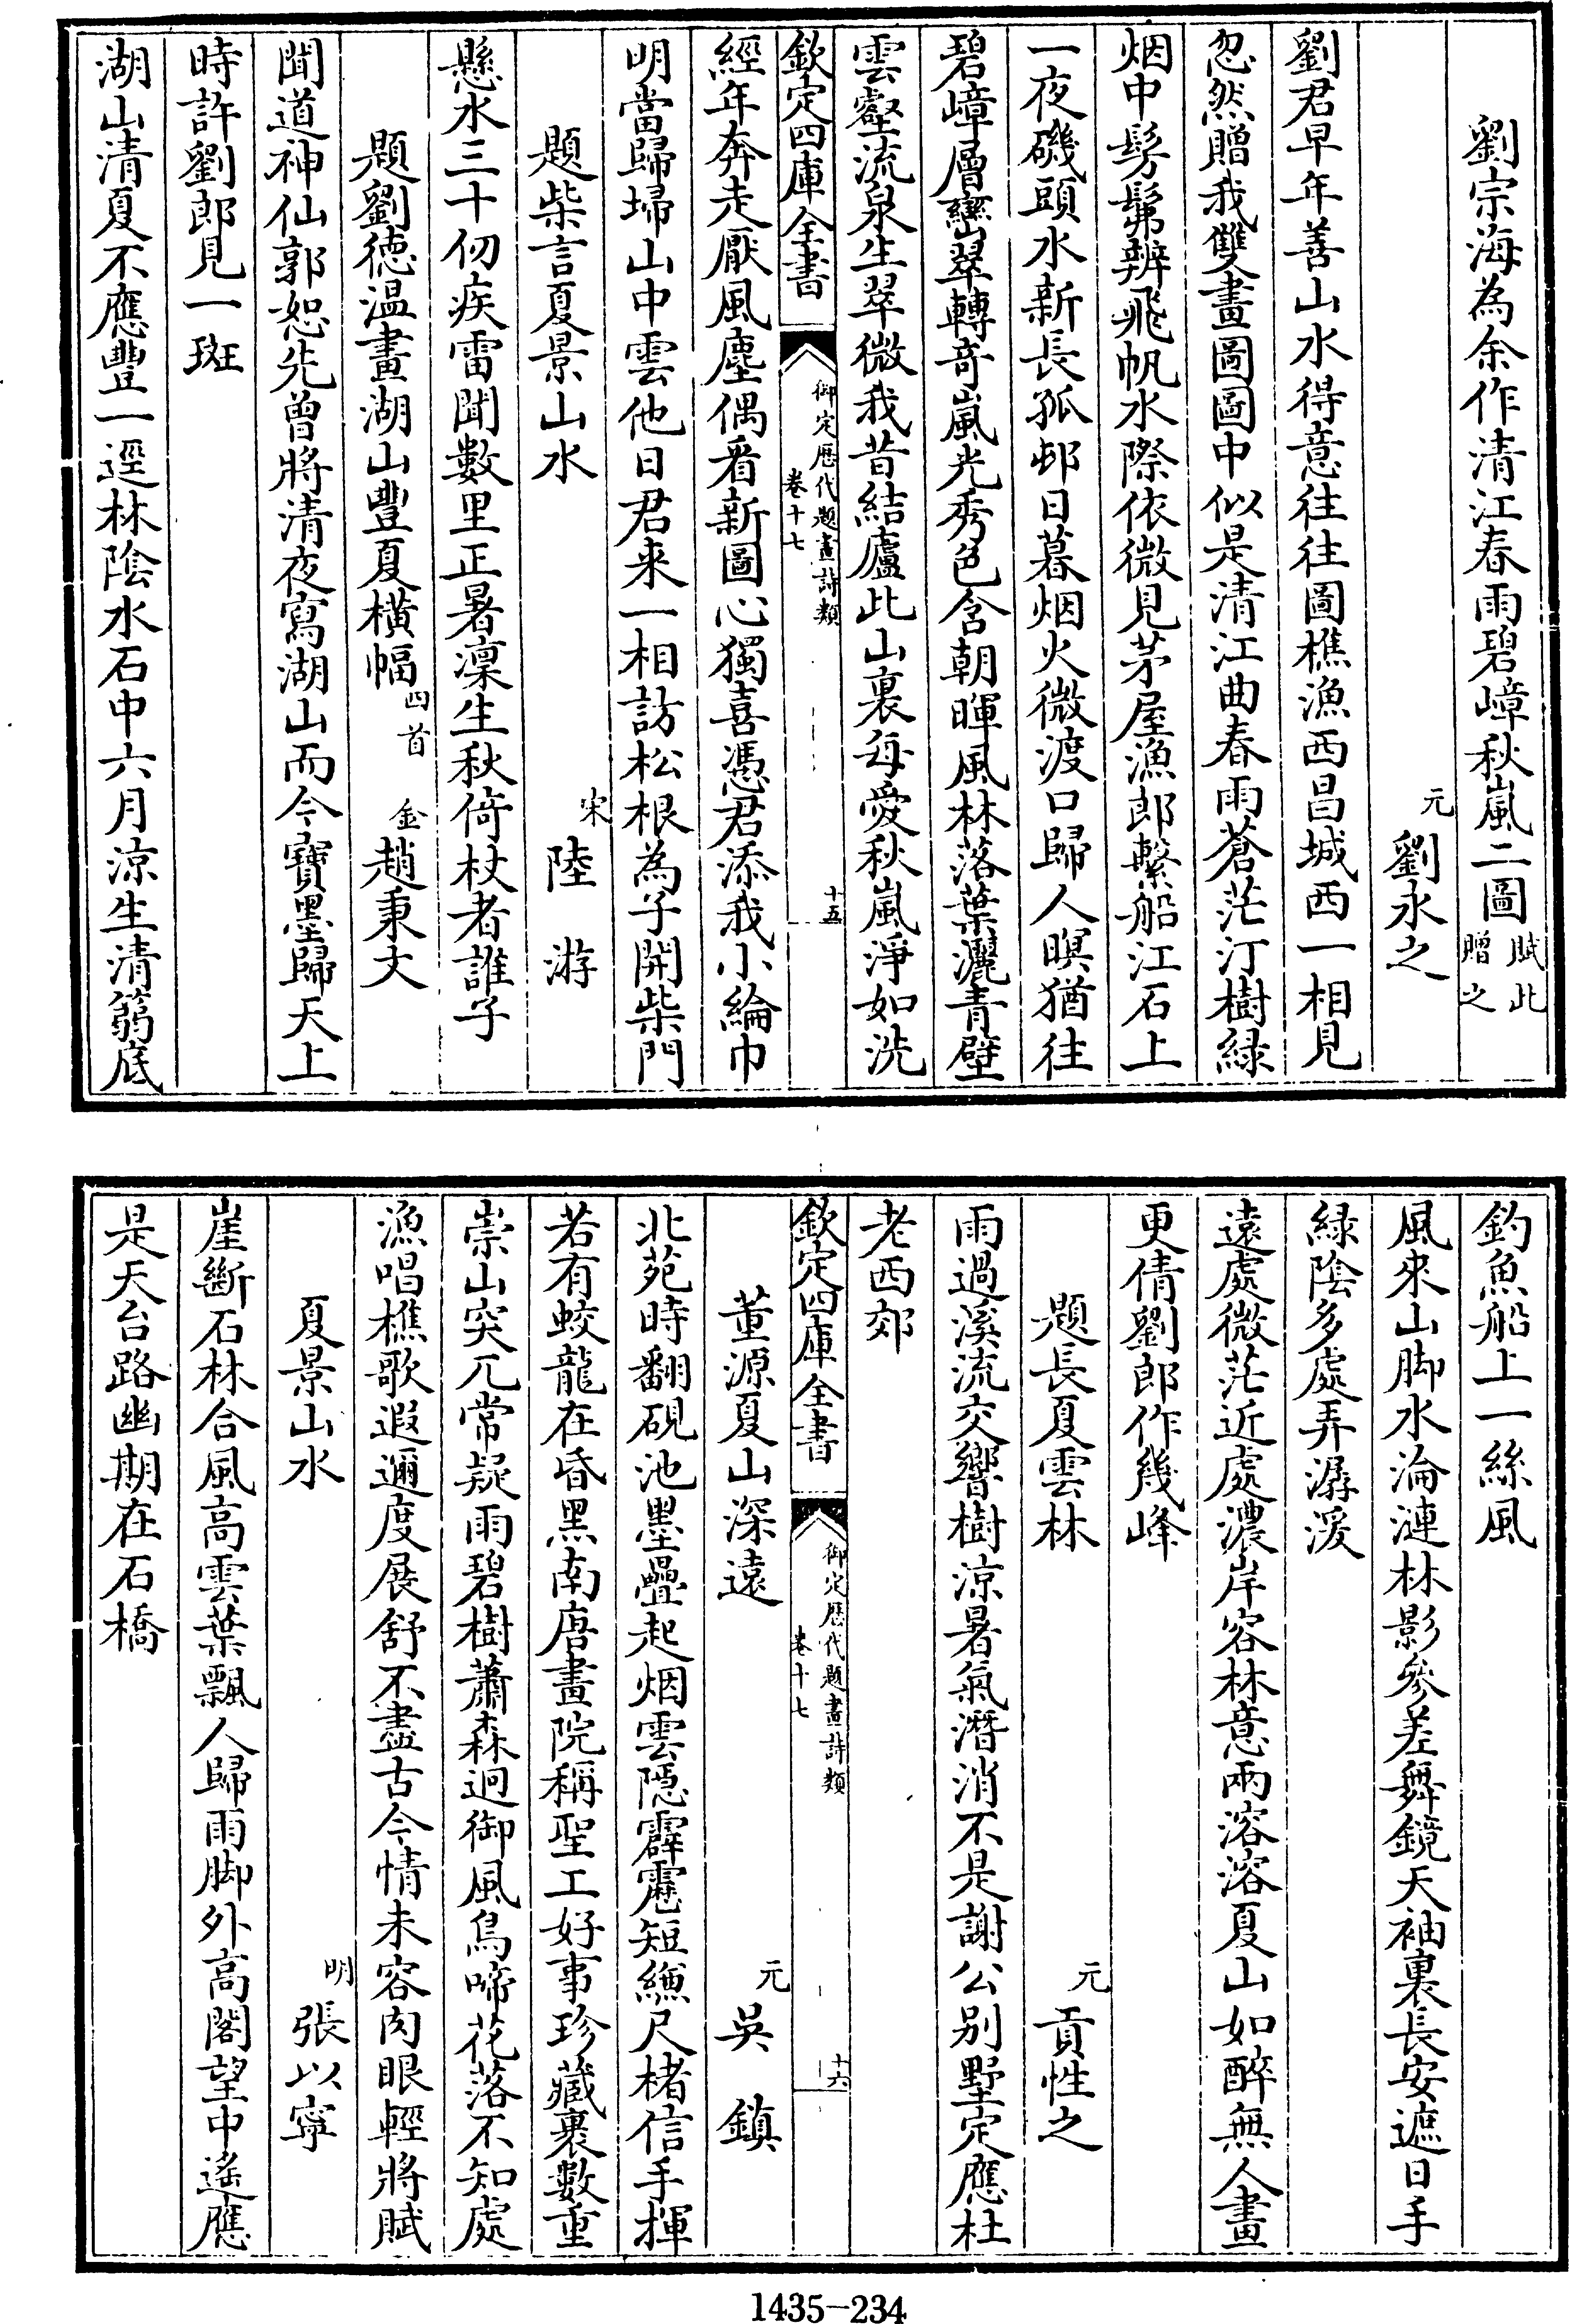 劉宗海為余作清江春雨碧嶂秋嵐二圖賦此贈之
元劉永之
劉君早年善山水得意往往圖樵漁西昌城西一相見
忽然贈我雙畫圖圖中似是清江曲春雨蒼茫汀樹緑
烟中髣髴辨飛帆水際依微見茅屋漁郎繫船江石上
一夜磯頭水新長孤邨日暮烟火微渡口歸人暝猶往
碧嶂層巒翠轉奇嵐光秀色含朝暉風林落葉灑青壁
雲壑流泉生翠微我昔結廬此山裏每愛秋嵐淨如洗
欽定四庫全書
御定歷代題畫詩類
卷十七
十五
經年奔走厭風塵偶看新圖心獨喜憑君添我小綸巾
明當歸埽山中雲他日君来一相訪松根為子開柴門
題柴言夏景山水
宋陸游
懸水三十仞疾雷聞數里正暑凜生秋倚杖者誰子
題劉德温畫湖山豐夏橫幅四首
金趙秉文
聞道神仙郭恕先曾將清夜寫湖山而今寶墨歸天上
時許劉郎見一斑
湖山清夏不應豐一逕林陰水石中六月凉生清篛底
釣魚船上一絲風
風來山脚水淪漣林影參差舞鏡天袖裏長安遮日手
緑陰多處弄潺湲
遠處微茫近處濃岸容林意兩溶溶夏山如醉無人畫
更倩劉郎作幾峰
題長夏雲林
元貢性之
雨過溪流交響樹凉暑氣潛消不是謝公别墅定應杜
老西郊
欽定四庫全書
御定歷代題畫詩類
卷十七
十六
董源夏山深遠
元吳鎮
北苑時翻硯池墨疊起烟雲隱霹靂短縑尺楮信手揮
若有蛟龍在昏黑南唐畫院稱聖工好事珍藏裹數重
崇山突兀常疑雨碧樹蕭森迥御風鳥啼花落不知處
漁唱樵歌遐邇度展舒不盡古今情未容肉眼輕將賦
夏景山水
明張以寧
崖斷石林合風高雲葉飄人歸雨脚外高閣望中遙應
是天台路幽期在石橋
1435-234